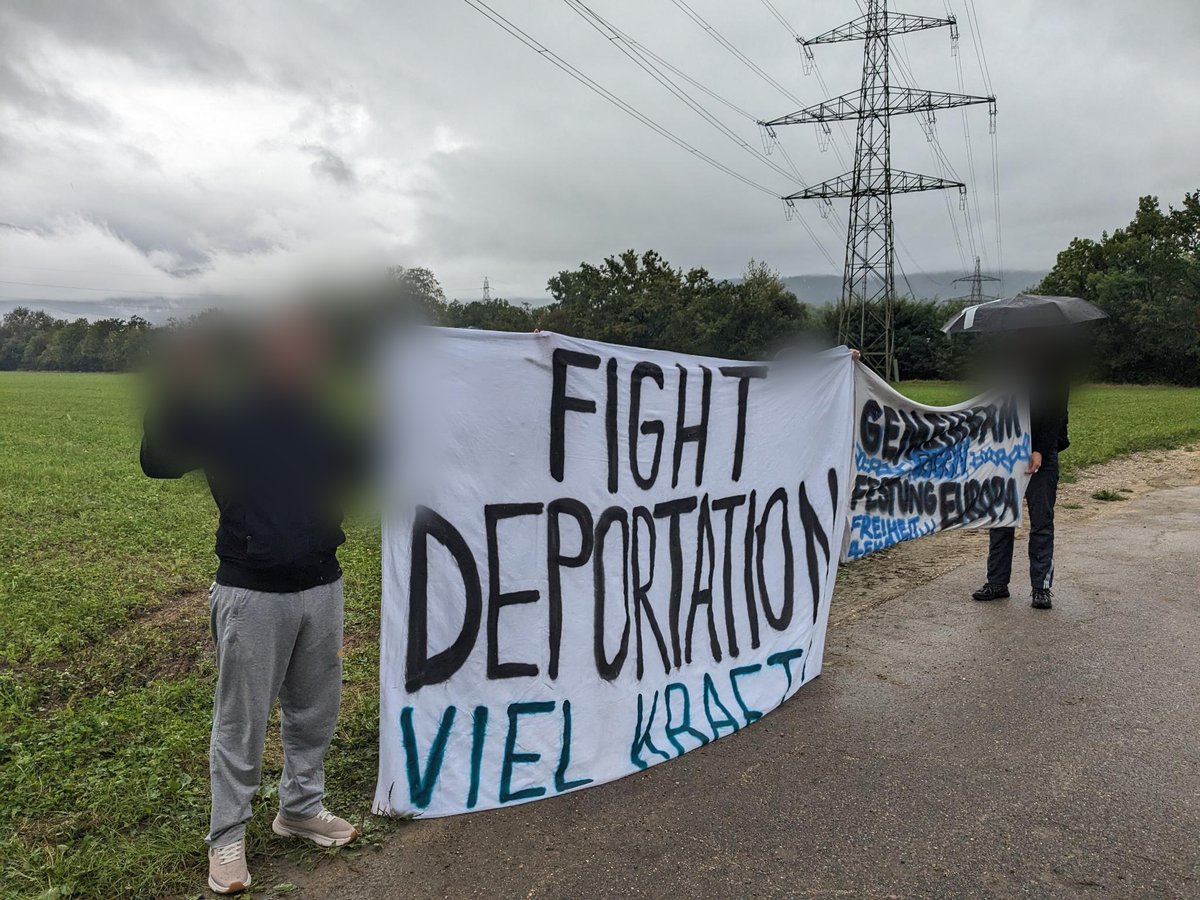 FIGHT
DEPORTATION
VIEL KRAFT!
GEMEINSAM
GEGEN
FESTUNG EUROPA
FREIHEIT